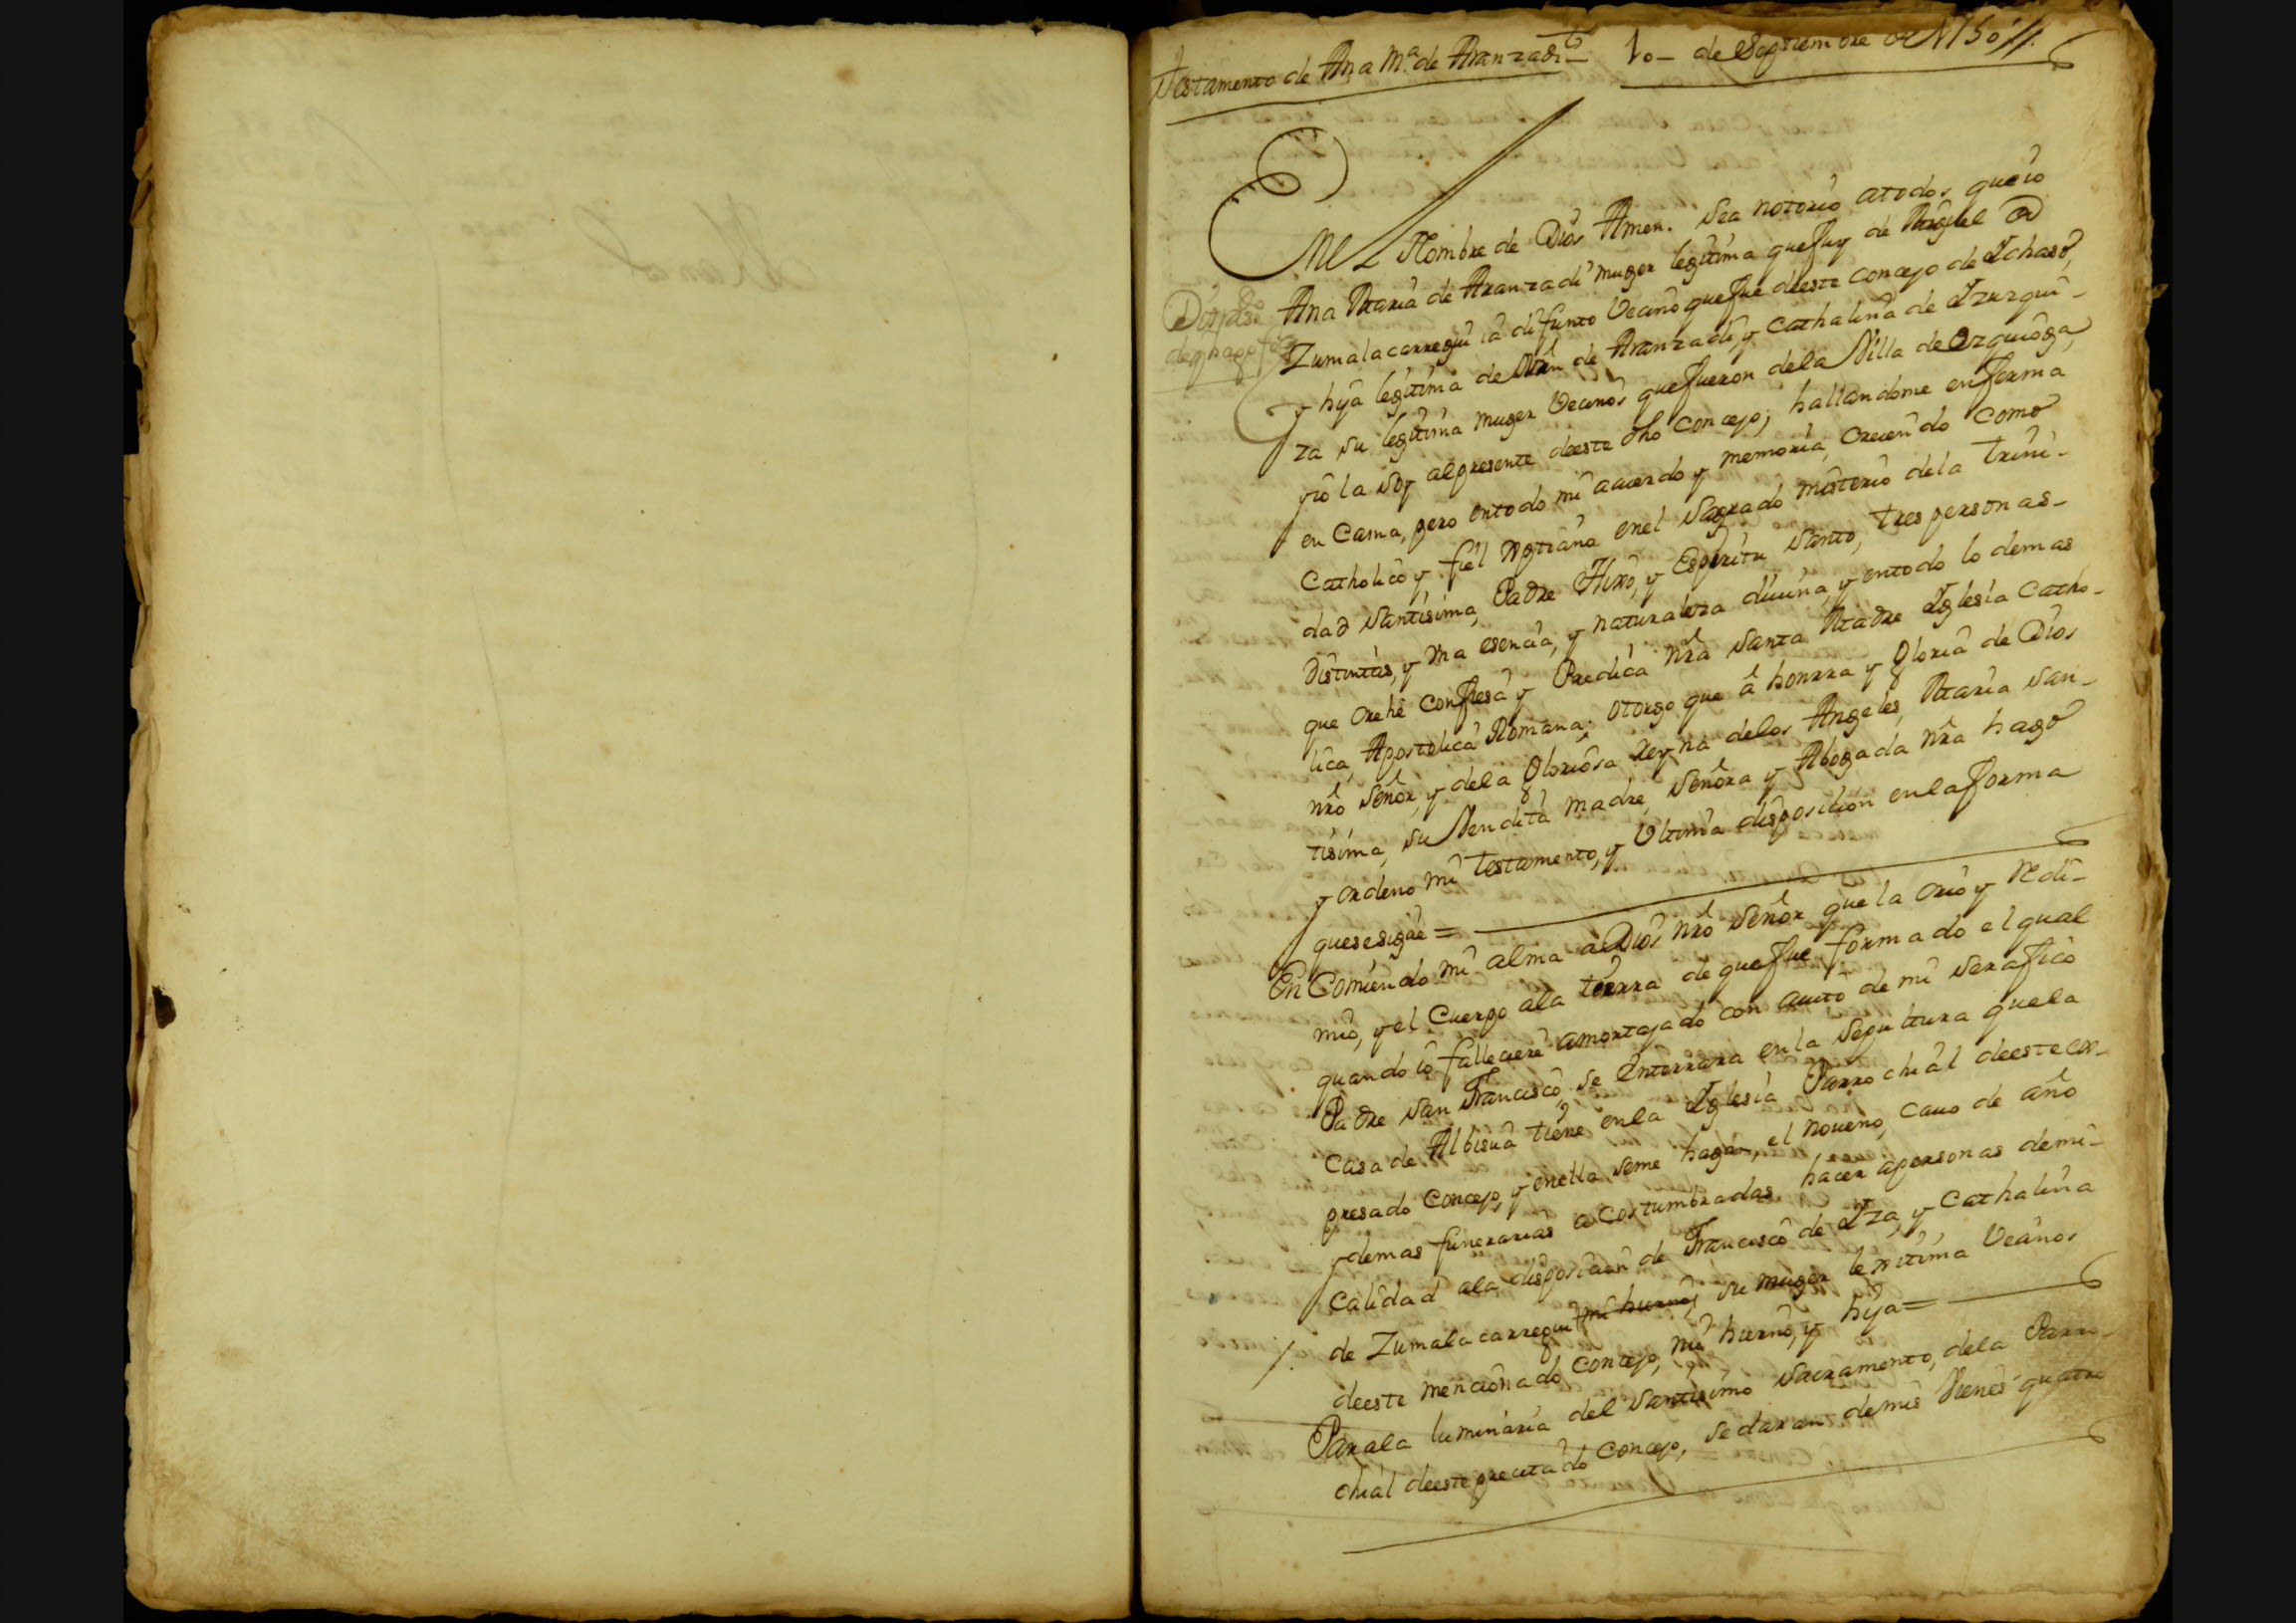 Testamento de Ana Mª de Aranzadi 10 de Septiembre de 1750//.
En el Nombre de Dios Amen. Sea notorio atodos que io
Ana Maria de Aranzadi muger legitima que fuy de Miguel de
Zumalacarregui ia difunto Vecino que fue deeste concejo de Ychaso,
y hija legitima de Mrn de Aranzadi y Cathalina de Yzurqui-
za su legitima muger Vecinos que fueron dela Villa de Ezquioga,
y io la soy alpresente deeste dho concejo; hallandome enferma
en Cama, pero entodo mi acuerdo y memoria, Creiendo como
Catholico y fiel Xptiana enel Sagrado misterio dela Trini-
dad Santisima, Padre Hixo, y Espiritu Santo, tres personas-
Distintas, y Vna esencia, y naturaleza diuina, y entodo lo demas
que Crehe Confiesa y Predica nra Santa Madre Yglesia Catho-
lica, Apostolica Romana; otorgo que â honrra y Gloria de Dios
nro Señor, y dela Gloriosa Reyna delos Angeles, Maria San-
tisima, su Vendita madre, Señora y Abogada nra hago
y ordeno mi testamento, y Vltima disposicion enla forma
quesesigue =
En Comiendo mi alma a Dios nro Señor que la Crio y Redi-
mio, y el Cuerpo ala tierra de que fue formado el qual
quando io falleciere amortajado con auito de mi Serafico
Padre San Francisco, se Enterrara en la Sepultura quela
Casa de Albisua tiene enla Yglesia Parrochial deesteex-
presado Concejo, y enella seme hagan, el noueno, Cauo de año
y demas funerarias acostumbradas hacer apersonas demi-
Calidad ala disposicion de Francisco de Yza, y Cathalina
/. de Zumalacarregui mi hierno, su muger lexitima Vecinos
deeste mencionado Concejo, mi hierno, y hija =
Parala luminaria del Santisimo Sacramento, dela Parro-
chial deeste precitado Concejo, se daran demis Vienes quatro